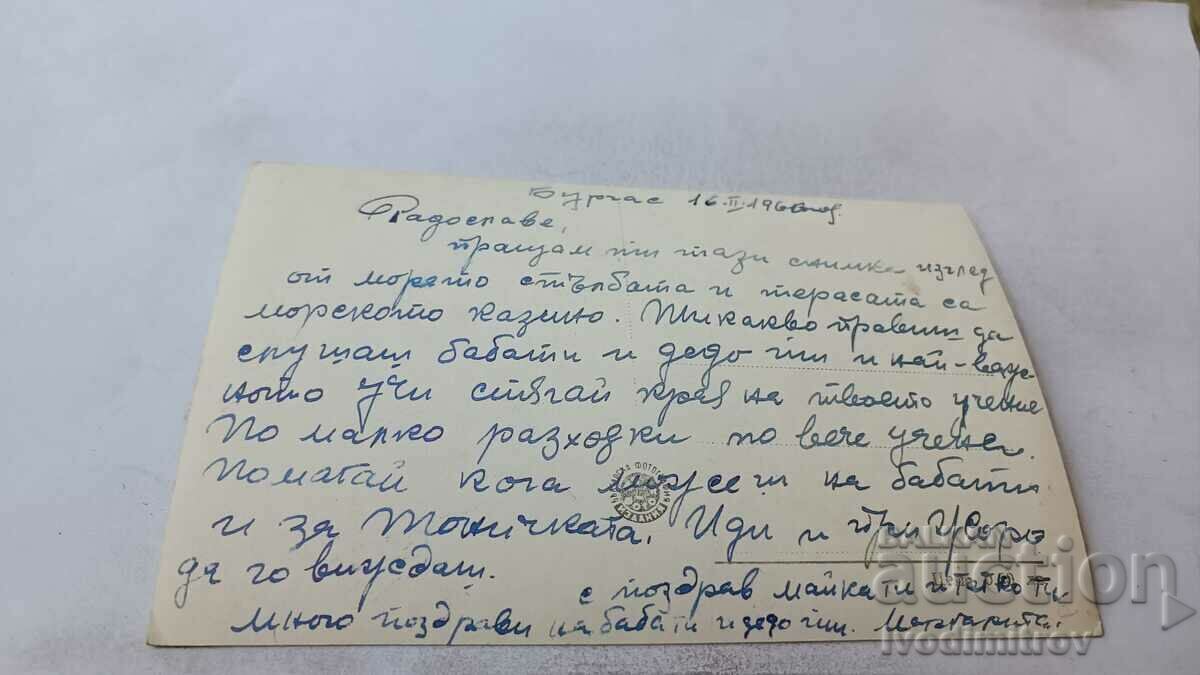 Бургас 16.II.196
Радославе,
пращам ти тази снимка изглед
от морето стълбата и терасата са
морското казино. Ти какво правиш да
слушаш баба ти и дедо ти и най-важ
ното Учи стягай края на твоето учение
По малко разходки по вече учение.
Помагай кога можеш на баба ти
и за Тоничката. Иди и при
да го виждаш.
с поздрав майка ти и татко ти
Много поздрави на баба ти и дедо ти. Маргарита.
БАЛКАН
auction
ivodimitrov